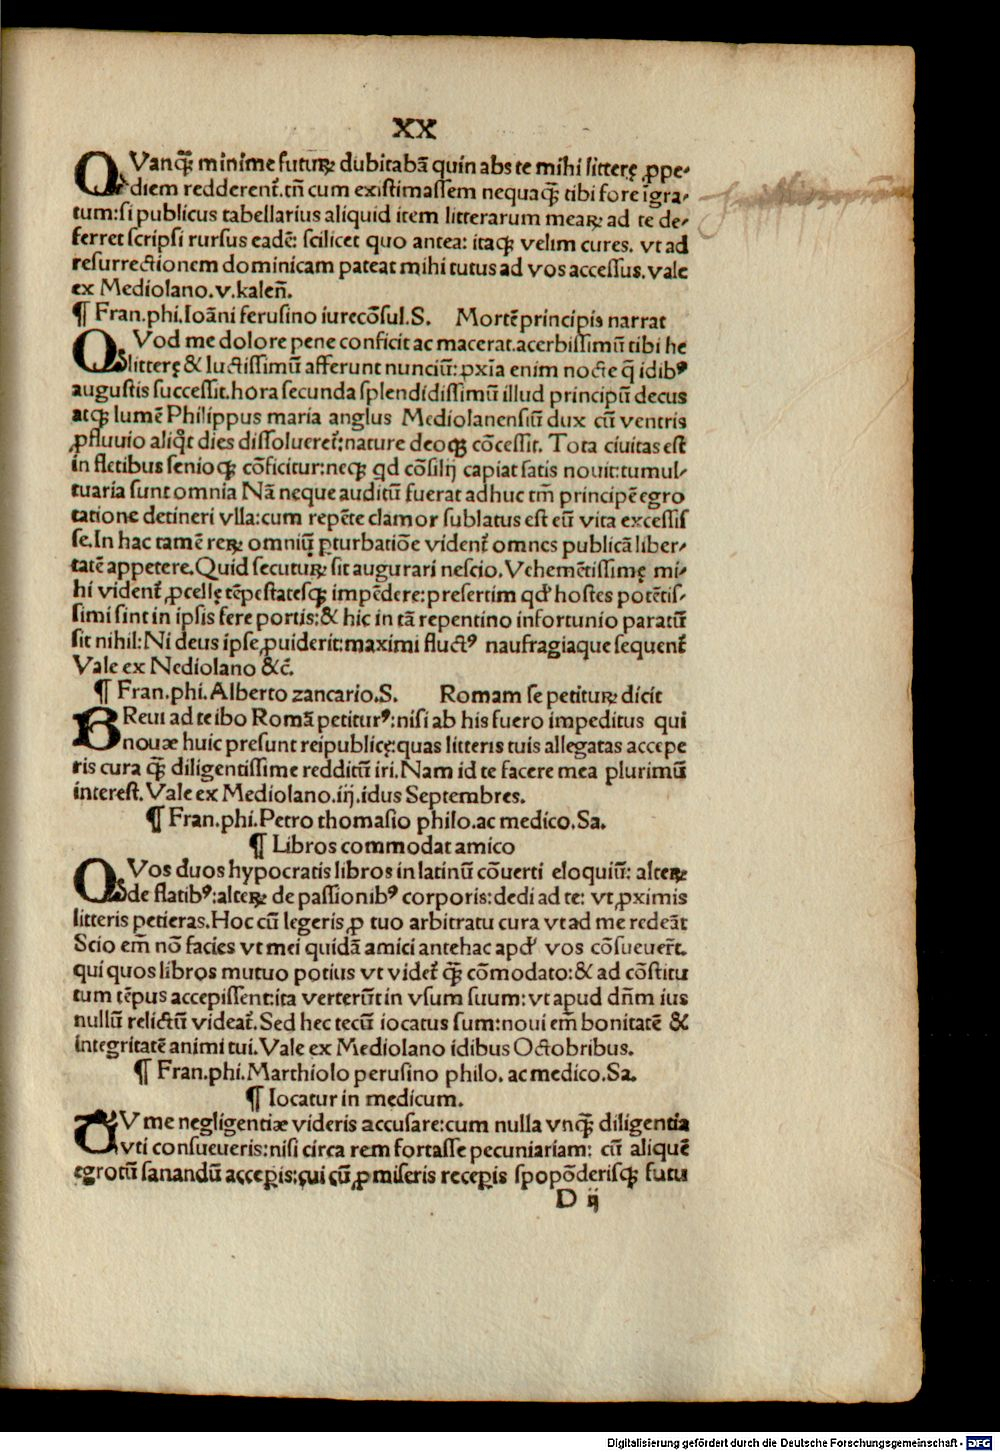 XX
QVanꝗ̃ minime futuꝝ dubitabã quin abs te mihi litterę ꝓpe-
diem redderent̃. tñ cum existimassem nequaꝗ̃ tibi fore ĩgra-
tum: si publicus tabellarius aliquid item litterarum meaꝝ ad te de-
ferret scripsi rursus eadẽ: scilicet quo antea: itaqꝫ velim cures. vt ad
resurrectionem dominicam pateat mihi tutus ad vos accessus. vale
ex Mediolano. v. kaleñ.
¶ Fran. phi. Ioãni ferusino iurecõsul. S. Mortẽ principis narrat
QVod me dolore pene conficit ac macerat. acerbissimũ tibi he
litterę & luctissimũ afferunt nunciũ: ꝓxĩa enim nocte q̃ idibꝰ
augustis successit. hora secunda splendidissimũ illud principũ decus
atqꝫ lumẽ Philippus maria anglus Mediolanensiũ dux cũ ventris
ꝓfluuio aliq̃t dies dissolueret̃: nature deoqꝫ cõcessit. Tota ciuitas est
in fletibus senioqꝫ cõficitur: neqꝫ qd cõsilij capiat satis nouit: tumul-
tuaria sunt omnia Nã neque auditũ fuerat adhuc tm̃ principẽ egro
tatione detineri vlla: cum repẽte clamor sublatus est eũ vita excessis
se. In hac tamẽ reꝝ omniũ ꝑturbatiõe vident̃ omnes publicã liber-
tatẽ appetere. Quid secutuꝝ sit augurari nescio. Vehemẽtissimę mi-
hi vident̃ ꝓcellę tẽpestatesqꝫ impẽdere: presertim qđ hostes potẽtis-
simi sint in ipsis fere portis: & hic in tã repentino infortunio paratũ
sit nihil: Ni deus ipse ꝓuiderit: maximi fluctꝰ naufragiaque sequent̃
Vale ex Nediolano &c̃.
¶ Fran. phi. Alberto zancario. S. Romam se petituꝝ dicit
BReui ad te ibo Romã petiturꝰ: nisi ab his fuero impeditus qui
nouæ huic presunt reipublicę: quas litteris tuis allegatas accepe
ris cura ꝗ̃ diligentissime redditũ iri. Nam id te facere mea plurimũ
interest. Vale ex Mediolano. iij. idus Septembres.
¶ Fran. phi. Petro thomasio philo. ac medico. Sa.
¶ Libros commodat amico
QVos duos hypocratis libros in latinũ cõuerti eloquiũ: alteꝝ
de flatibꝰ: alteꝝ de passionibꝰ corporis: dedi ad te: vt ꝓximis
litteris petieras. Hoc cũ legeris ꝓ tuo arbitratu cura vt ad me redeãt
Scio em̃ nõ facies vt mei quidã amici antehac apđ vos cõsueuer̃t.
qui quos libros mutuo potius vt videt̃ ꝗ̃ cõmodato: & ad cõstitu
tum tẽpus accepissent: ita verterũt in vsum suum: vt apud dñm ius
nullũ relictũ videat̃. Sed hec tecũ iocatus sum: noui em̃ bonitatẽ &
integritatẽ animi tui. Vale ex Mediolano idibus Octobribus.
¶ Fran. phi. Marchiolo perusino philo. ac medico. Sa.
¶ Iocatur in medicum.
TV me negligentiæ videris accusare: cum nulla vnꝗ̃ diligentia
vti consueueris: nisi circa rem fortasse pecuniariam: cũ aliquẽ
egrotũ sanandũ acceꝑis: cui cũ ꝓ miseris receꝑis spopõderisqꝫ futu
D ij
Digitalisierung gefördert durch die Deutsche Forschungsgemeinschaft - DFG